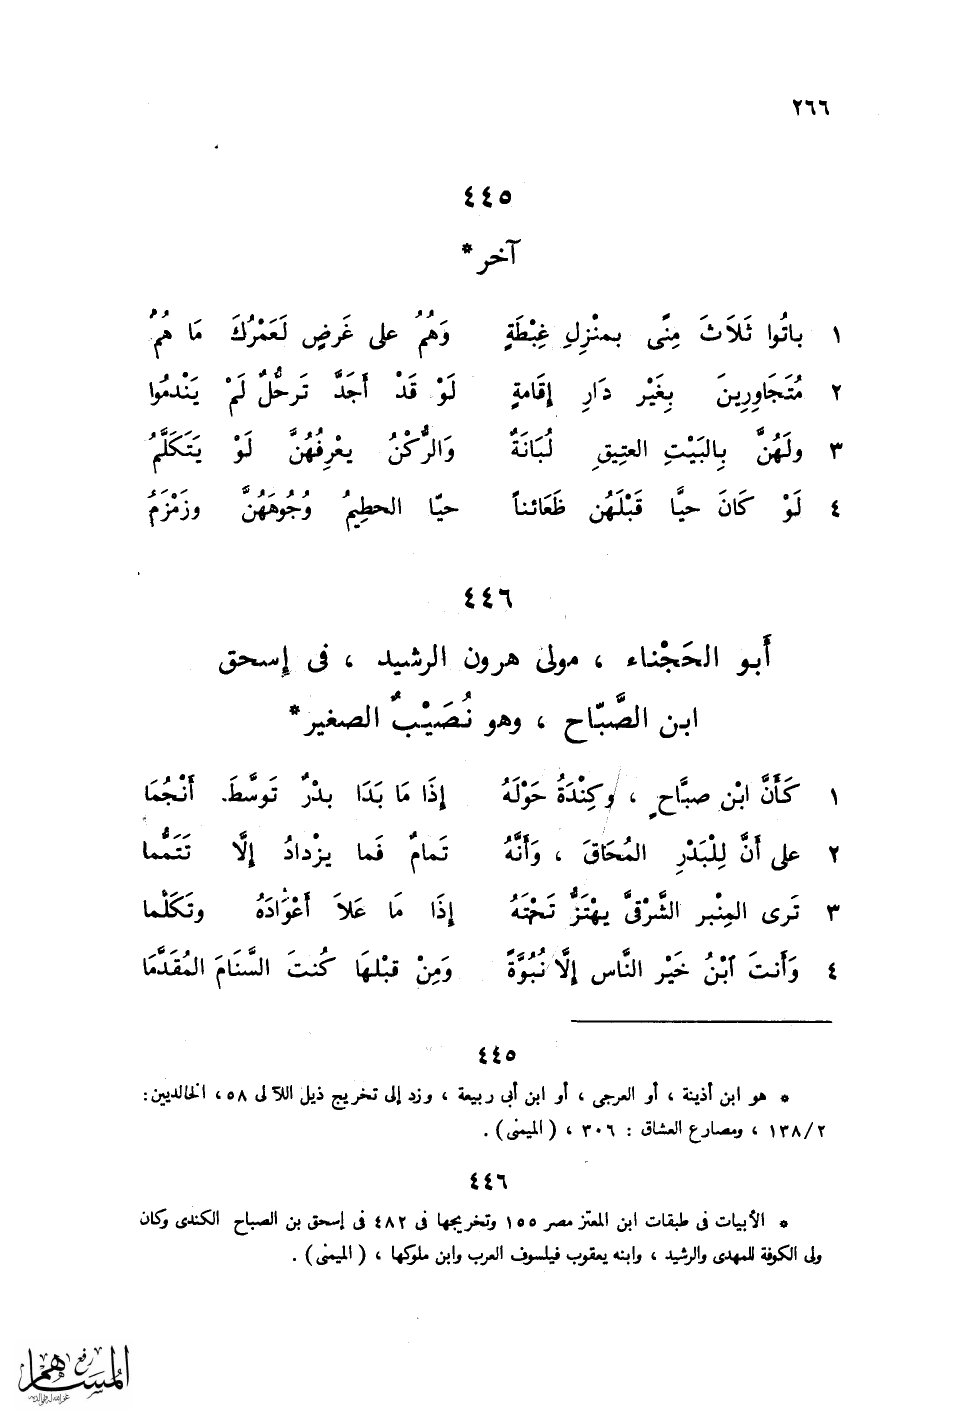 ٢٦٦
٤٤٥
آخر *
١ باتُوا ثَلَاثَ مِنًى بمنْزِلِ غِبْطَةٍ وَهُمُ على غَرَضٍ لَعَمْرُكَ مَا هُمُ
٢ مُتَجَاوِرِينَ بِغَيْرِ دَارِ إقَامةٍ لَوْ قَدْ أَجَدَّ تَرحُّلٌ لَمْ يَنْدمُوا
٣ ولَهُنَّ بِالبَيْتِ العتِيقِ لُبَانَةٌ وَالرُّكْنُ يعْرِفُهُنَّ لَوْ يَتَكَلَّمُ
٤ لَوْ كَانَ حيَّا قَبْلَهُن ظَعَائناً حيّا الحطِيمُ وُجُوهَهُنَّ وزَمْزَمُ
٤٤٦
أَبو الحَجْناء ، مولى هرون الرشيد ، فى إسحق
ابن الصَّبّاح ، وهو نُصَيْبٌ الصغير *
١ كَأَنَّ ابْن صبَّاحٍ ، وكِنْدَةُ حَوْلَهُ إِذَا مَا بَدَا بدْرٌ تَوسَّطَ أَنْجُمَا
٢ على أَنَّ لِلْبَدْرِ المُحَاقَ ، وَأَنَّهُ تَمامٌ فَما يزْدادُ إلَّا تَتَمُّما
٣ تَرى المِنْبر الشَّرْقىَّ يهْتَزُّ تَحْتَهُ إِذَا مَا عَلاَ أَعْوَادَهُ وتَكَلَّما
٤ وَأَنتَ ٱبْنُ خَيْر النَّاس إلَّا نُبُوَّةً وَمِنْ قبْلهَا كُنتَ السَّنَامَ المُقَدَّمَا
٤٤٥
* هو ابن أذينة ، أو العرجى ، أو ابن أبى ربيعة ، وزد إلى تخريج ذيل اللآلى ٥٨ ، الخالديين :
٢ / ١٣٨ ، ومصارع العشاق : ٣٠٦ ، ( الميمنى ) .
٤٤٦
* الأبيات فى طبقات ابن المعتز مصر ١٥٥ وتخريجها فى ٤٨٢ فى إسحق بن الصباح الكندى وكان
ولى الكوفة للمهدى والرشيد ، وابنه يعقوب فيلسوف العرب وابن ملوكها ، ( الميمنى ) .
رفع
المساهم